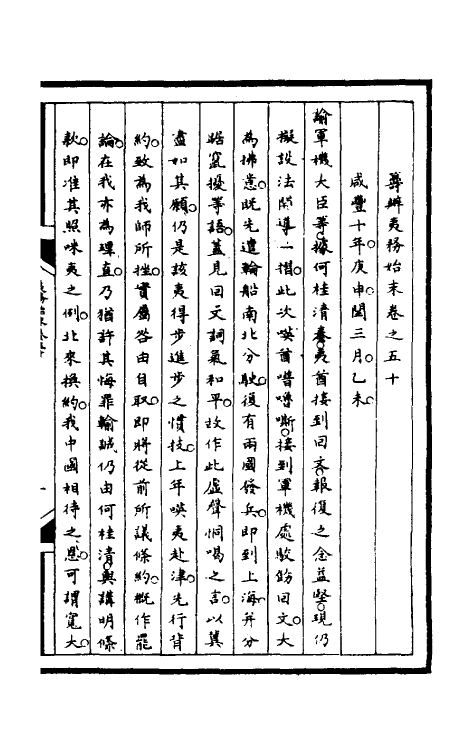 籌辦夷務始末卷之五十
咸豐十年庚申閏三月乙未
諭軍機大臣等據何桂清奏夷酋接到回文報復之念益堅現仍
擬設法開導一摺此次㖞酋嘈嘶接到軍機處駮飭回文大
為拂意既先遣輪船南北分駛復有兩國發兵即到上海并分
踞竄擾等語蓋見回文詞氣和平故作此虛聲恫喝之言以冀
盡如其願仍是該夷得步進步之慣技上年㖞夷赴津先行背
約致為我師所挫實屬咎由自取即將從前所議條約概作罷
論在我亦為理直乃猶許其悔罪輸誠仍由何桂清與講明條
款即准其照咪夷之例北來換約我中國相待之恩可謂寬大